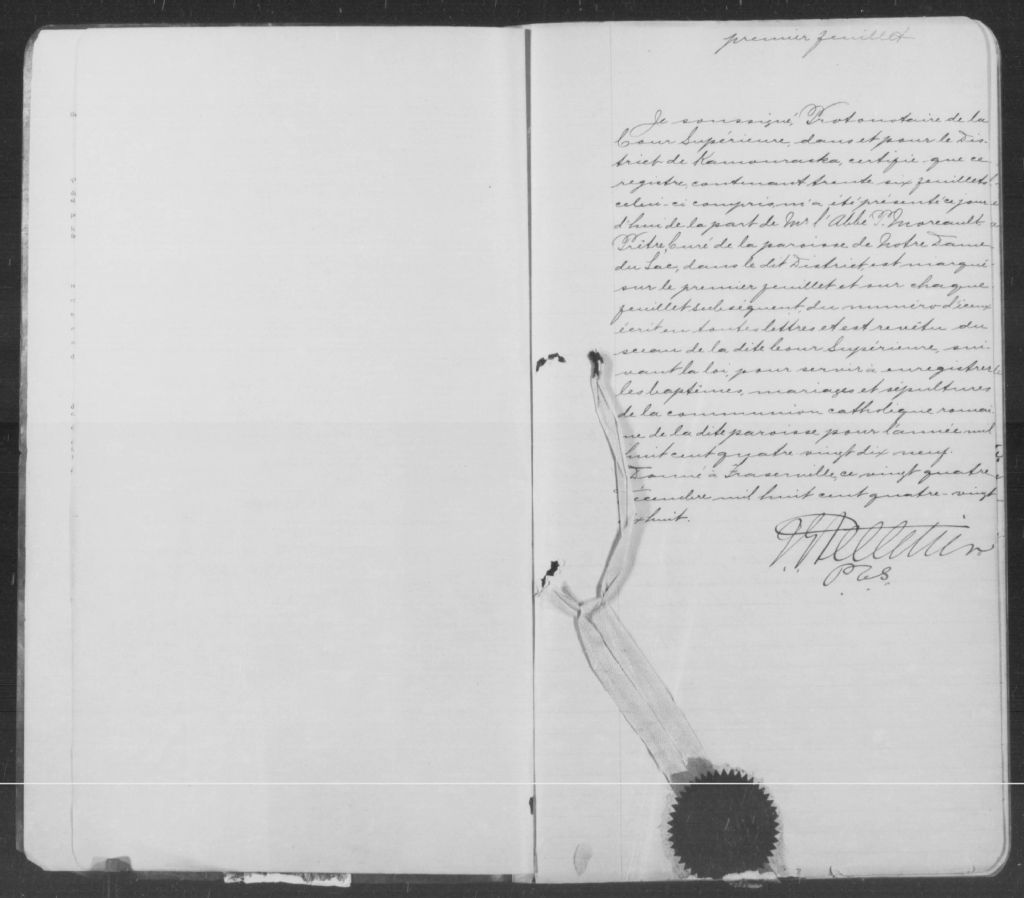 premier feuillet
Je soussigné, Protonotaire de la
Cour Supérieure, dans et pour le Dis-
trict de Kamouraska, certifie que ce
registre, contenant trente six feuillets
celui-ci compris, m'a été présenté ce jour
d'hui de la part de Mr l'Abbé T. Moreault
Prêtre, Curé de la paroisse de Notre Dame
du Lac, dans le dit District, est marqué
sur le premier feuillet et sur chaque
feuillet subséquent, du numéro d'iceux
écrit en toutes lettres et est revêtu du
sceau de la dite Cour Supérieure, sui
vant la loi, pour servir à enregistrer
les baptêmes, mariages et sépultures
de la communion catholique romai
ne de la dite paroisse pour l'année mil
huit cent quatre vingt dix neuf.
Donné à Fraserville, ce vingt quatre
écembre mil huit cent quatre-vingt
x huit.
Pelletier
P.C.S.